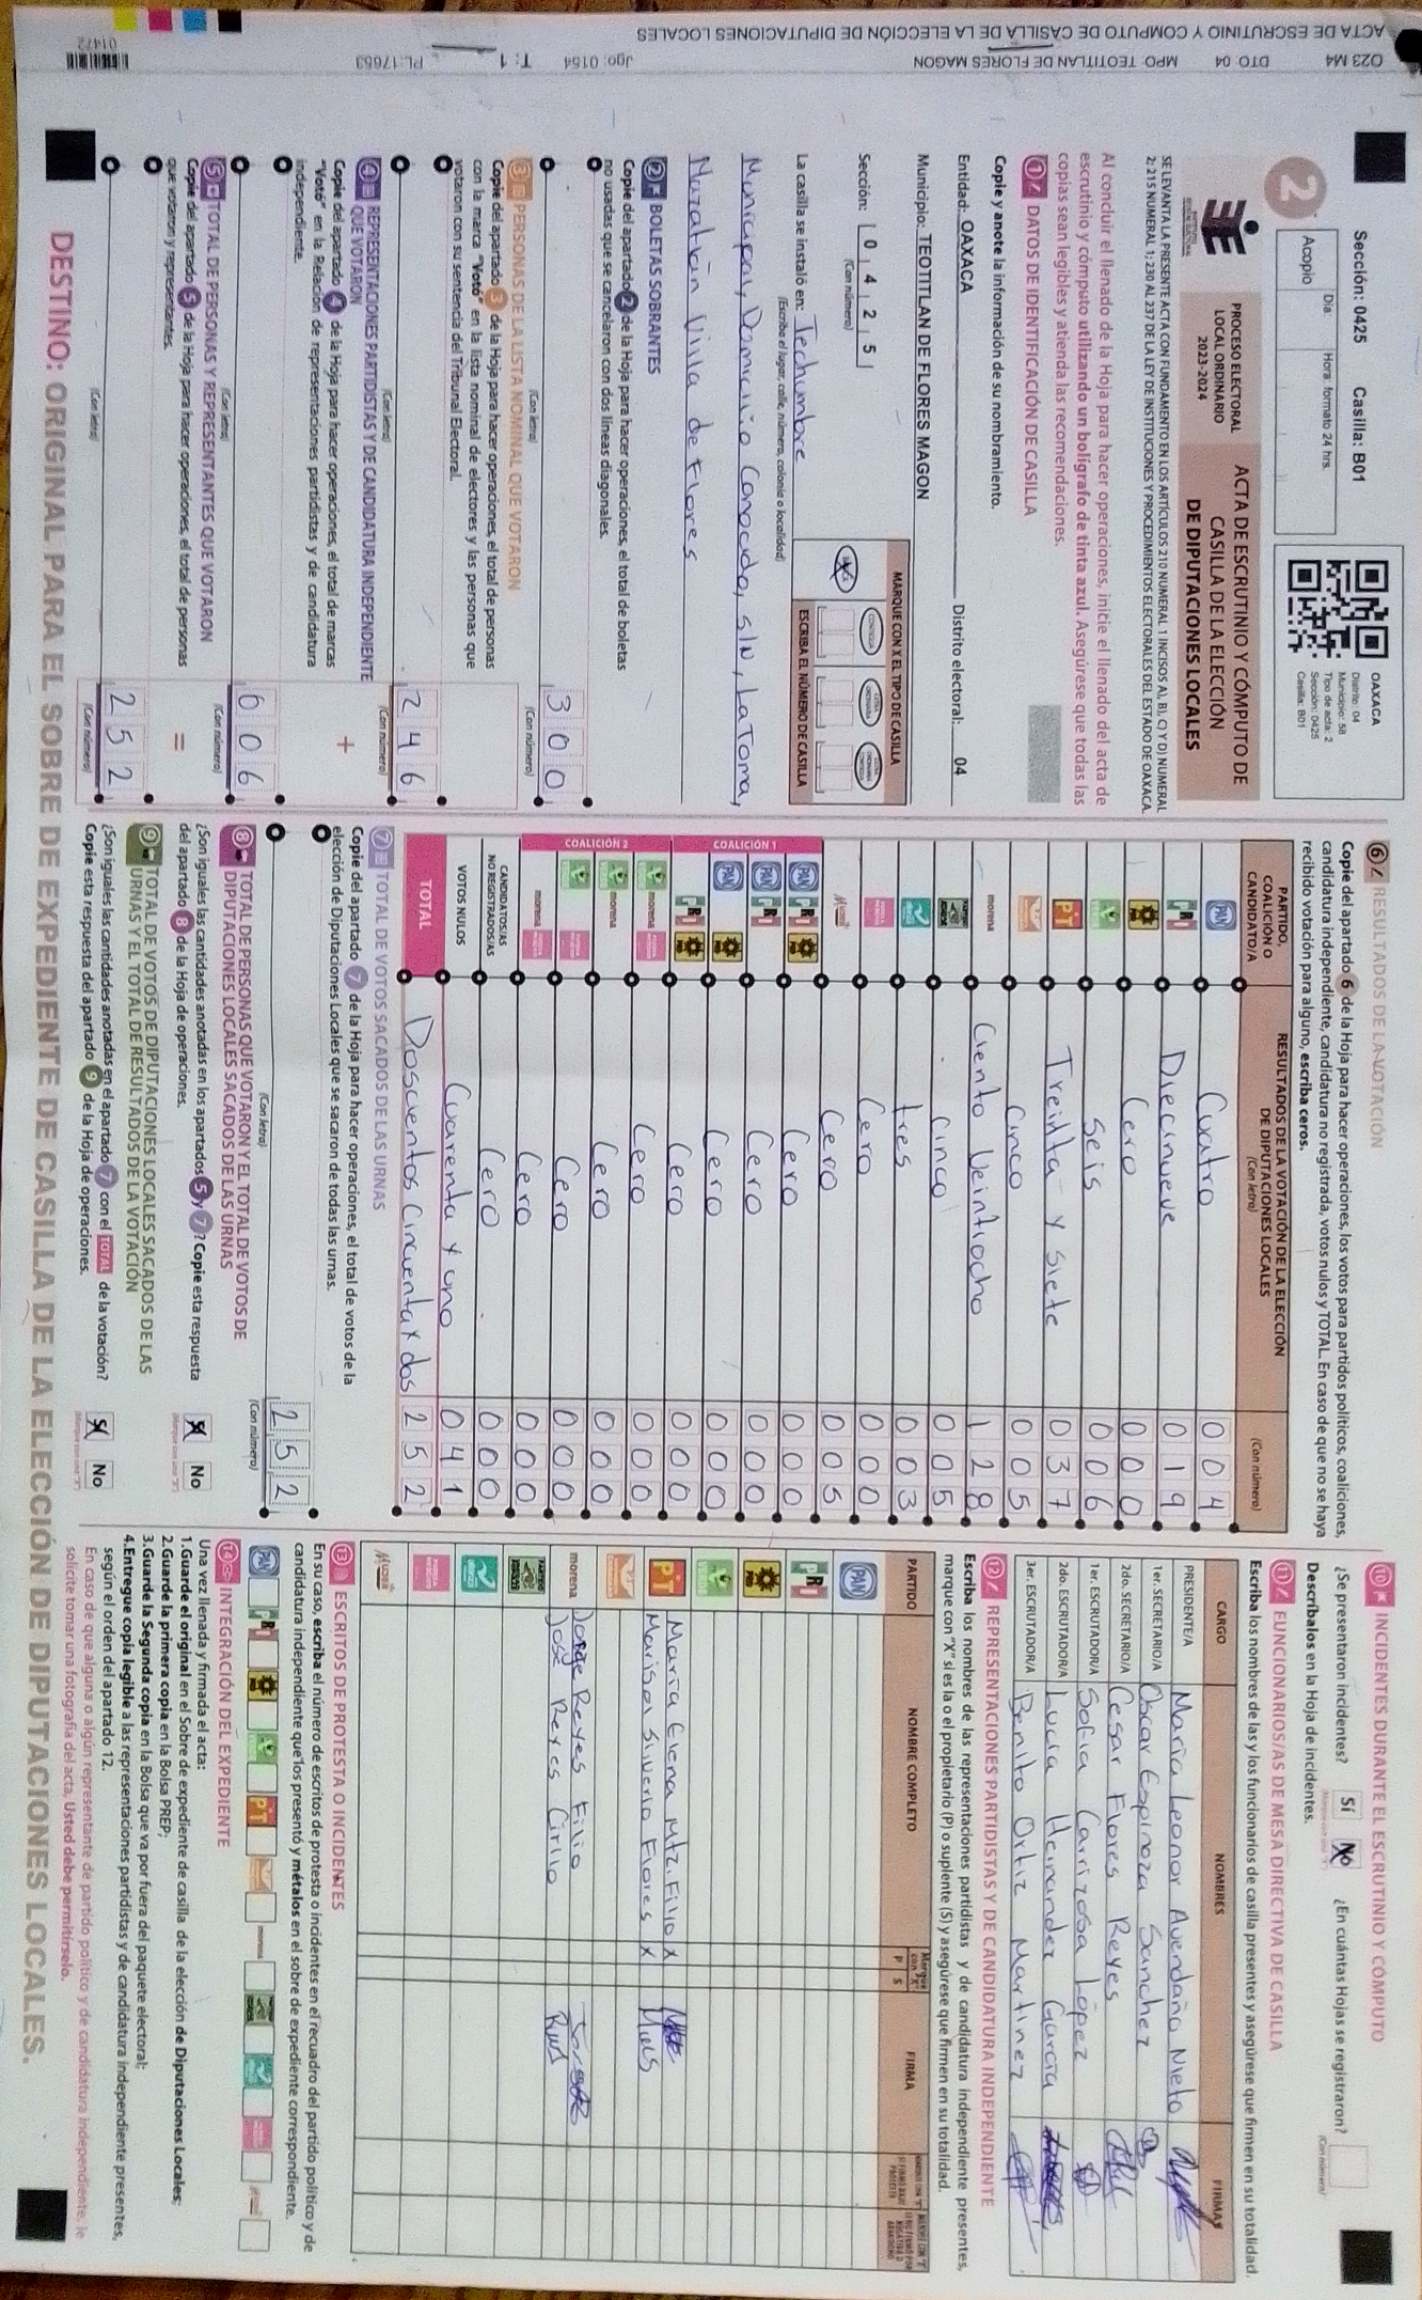 O23 M4 DTO: 04 MPO: TEOTITLAN DE FLORES MAGON Jgo: 0154 T: 1 PL: 17653 01472
ACTA DE ESCRUTINIO Y CÓMPUTO DE CASILLA DE LA ELECCIÓN DE DIPUTACIONES LOCALES
Sección: 0425 Casilla: B01
Día: Hora: formato 24 hrs.
Acopio
2
OAXACA
Distrito: 04
Municipio: 58
Tipo de acta: 2
Sección: 0425
Casilla: B01
PROCESO ELECTORAL
LOCAL ORDINARIO
2023-2024
ACTA DE ESCRUTINIO Y CÓMPUTO DE
CASILLA DE LA ELECCIÓN
DE DIPUTACIONES LOCALES
SE LEVANTA LA PRESENTE ACTA CON FUNDAMENTO EN LOS ARTÍCULOS 210 NUMERAL 1 INCISOS A), B), C) Y D) NUMERAL
2; 215 NUMERAL 1; 230 AL 237 DE LA LEY DE INSTITUCIONES Y PROCEDIMIENTOS ELECTORALES DEL ESTADO DE OAXACA.
Al concluir el llenado de la Hoja para hacer operaciones, inicie el llenado del acta de
escrutinio y cómputo utilizando un bolígrafo de tinta azul. Asegúrese que todas las
copias sean legibles y atienda las recomendaciones.
1 DATOS DE IDENTIFICACIÓN DE CASILLA
Copie y anote la información de su nombramiento.
Entidad: OAXACA Distrito electoral: 04
Municipio: TEOTITLAN DE FLORES MAGON
Sección: 0 4 2 5
(Con número)
MARQUE CON X EL TIPO DE CASILLA
ESCRIBA EL NÚMERO DE CASILLA
La casilla se instaló en: Techumbre
(Escriba el lugar, calle, número, colonia o localidad)
Municipal, Domicilio Conocido, S/N, La Toma,
Mazatlán Villa de Flores
2 BOLETAS SOBRANTES
Copie del apartado 2 de la Hoja para hacer operaciones, el total de boletas
no usadas que se cancelaron con dos líneas diagonales.
(Con letra)
3 0 0
(Con número)
3 PERSONAS DE LA LISTA NOMINAL QUE VOTARON
Copie del apartado 3 de la Hoja para hacer operaciones, el total de personas
con la marca "Votó" en la lista nominal de electores y las personas que
votaron con su sentencia del Tribunal Electoral.
(Con letra)
2 4 6
(Con número)
4 REPRESENTACIONES PARTIDISTAS Y DE CANDIDATURA INDEPENDIENTE
QUE VOTARON
Copie del apartado 4 de la Hoja para hacer operaciones, el total de marcas
"Votó" en la Relación de representaciones partidistas y de candidatura
independiente.
+
(Con letra)
0 0 6
(Con número)
5 TOTAL DE PERSONAS Y REPRESENTANTES QUE VOTARON
Copie del apartado 5 de la Hoja para hacer operaciones, el total de personas
que votaron y representantes.
=
(Con letra)
2 5 2
(Con número)
6 RESULTADOS DE LA VOTACIÓN
Copie del apartado 6 de la Hoja para hacer operaciones, los votos para partidos políticos, coaliciones,
candidatura independiente, candidatura no registrada, votos nulos y TOTAL. En caso de que no se haya
recibido votación para alguno, escriba ceros.
PARTIDO, COALICIÓN O CANDIDATO/A
RESULTADOS DE LA VOTACIÓN DE LA ELECCIÓN DE DIPUTACIONES LOCALES (Con letra)
(Con número)
PAN Cuatro 0 0 4
PRI Diecinueve 0 1 9
PRD Cero 0 0 0
VERDE Seis 0 0 6
PT Treinta y Siete 0 3 7
Cinco 0 0 5
morena Ciento Veintiocho 1 2 8
Cinco 0 0 5
tres 0 0 3
Cero 0 0 0
Mujer Cero 0 0 5
COALICIÓN 1
PAN PRI PRD Cero 0 0 0
PAN PRI Cero 0 0 0
PAN PRD Cero 0 0 0
PRI PRD Cero 0 0 0
COALICIÓN 2
morena Cero 0 0 0
morena Cero 0 0 0
Cero 0 0 0
morena Cero 0 0 0
CANDIDATOS/AS NO REGISTRADOS/AS Cero 0 0 0
VOTOS NULOS Cuarenta y uno 0 4 1
TOTAL Doscientos Cincuenta y dos 2 5 2
7 TOTAL DE VOTOS SACADOS DE LAS URNAS
Copie del apartado 7 de la Hoja para hacer operaciones, el total de votos de la
elección de Diputaciones Locales que se sacaron de todas las urnas.
(Con letra)
2 5 2
(Con número)
8 TOTAL DE PERSONAS QUE VOTARON Y EL TOTAL DE VOTOS DE
DIPUTACIONES LOCALES SACADOS DE LAS URNAS
¿Son iguales las cantidades anotadas en los apartados 5 y 7? Copie esta respuesta
del apartado 8 de la Hoja de operaciones.
Sí No
9 TOTAL DE VOTOS DE DIPUTACIONES LOCALES SACADOS DE LAS
URNAS Y EL TOTAL DE RESULTADOS DE LA VOTACIÓN
¿Son iguales las cantidades anotadas en el apartado 7 con el TOTAL de la votación?
Copie esta respuesta del apartado 9 de la Hoja de operaciones.
Sí No
10 INCIDENTES DURANTE EL ESCRUTINIO Y CÓMPUTO
¿Se presentaron incidentes? Sí No ¿En cuántas Hojas se registraron?
(Con número)
Descríbalos en la Hoja de incidentes.
11 FUNCIONARIOS/AS DE MESA DIRECTIVA DE CASILLA
Escriba los nombres de las y los funcionarios de casilla presentes y asegúrese que firmen en su totalidad.
CARGO NOMBRES FIRMAS
PRESIDENTE/A María Leonor Avendaño Nieto
1er. SECRETARIO/A Oscar Espinoza Sanchez
2do. SECRETARIO/A Cesar Flores Reyes
1er. ESCRUTADOR/A Sofia Carrizosa López
2do. ESCRUTADOR/A Lucia Hernandez García
3er. ESCRUTADOR/A Benito Ortiz Martinez
12 REPRESENTACIONES PARTIDISTAS Y DE CANDIDATURA INDEPENDIENTE
Escriba los nombres de las representaciones partidistas y de candidatura independiente presentes,
marque con "X" si es la o el propietario (P) o suplente (S) y asegúrese que firmen en su totalidad.
PARTIDO NOMBRE COMPLETO Marque con "X" P S FIRMA
PAN
PRI
PRD
VERDE
PT María Elena Mtz. Filio X
Marisol Siverio Flores X
morena Jorge Reyes Filio
José Reyes Cirilo
Mujer
13 ESCRITOS DE PROTESTA O INCIDENTES
En su caso, escriba el número de escritos de protesta o incidentes en el recuadro del partido político y de
candidatura independiente que los presentó y métalos en el sobre de expediente correspondiente.
PAN PRI PRD VERDE PT morena
14 INTEGRACIÓN DEL EXPEDIENTE
Una vez llenada y firmada el acta:
1.Guarde el original en el Sobre de expediente de casilla de la elección de Diputaciones Locales;
2.Guarde la primera copia en la Bolsa PREP;
3.Guarde la Segunda copia en la Bolsa que va por fuera del paquete electoral;
4.Entregue copia legible a las representaciones partidistas y de candidatura independiente presentes,
según el orden del apartado 12.
En caso de que alguna o algún representante de partido político y de candidatura independiente, le
solicite tomar una fotografía del acta, Usted debe permitírselo.
DESTINO: ORIGINAL PARA EL SOBRE DE EXPEDIENTE DE CASILLA DE LA ELECCIÓN DE DIPUTACIONES LOCALES.